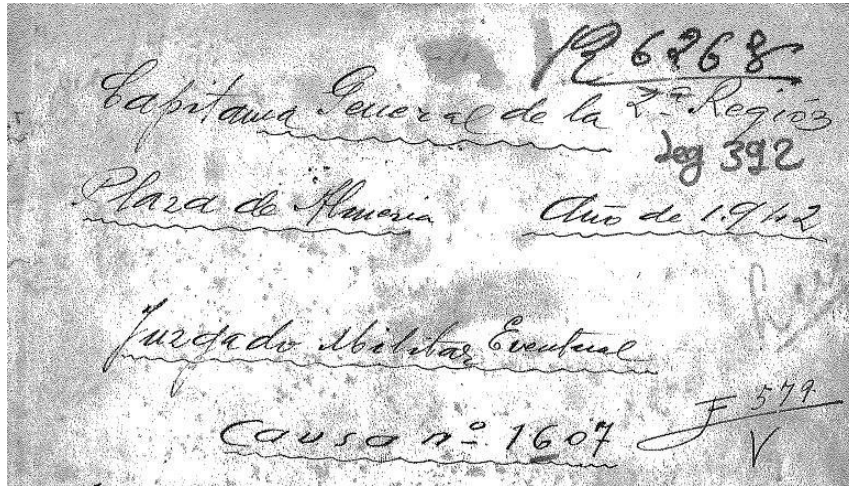 R 6268
Capitania General de la 2ª Región
Leg 392
Plaza de Almeria Año de 1.942
Juzgado Militar Eventual
F 579
Causa nº 1607 V